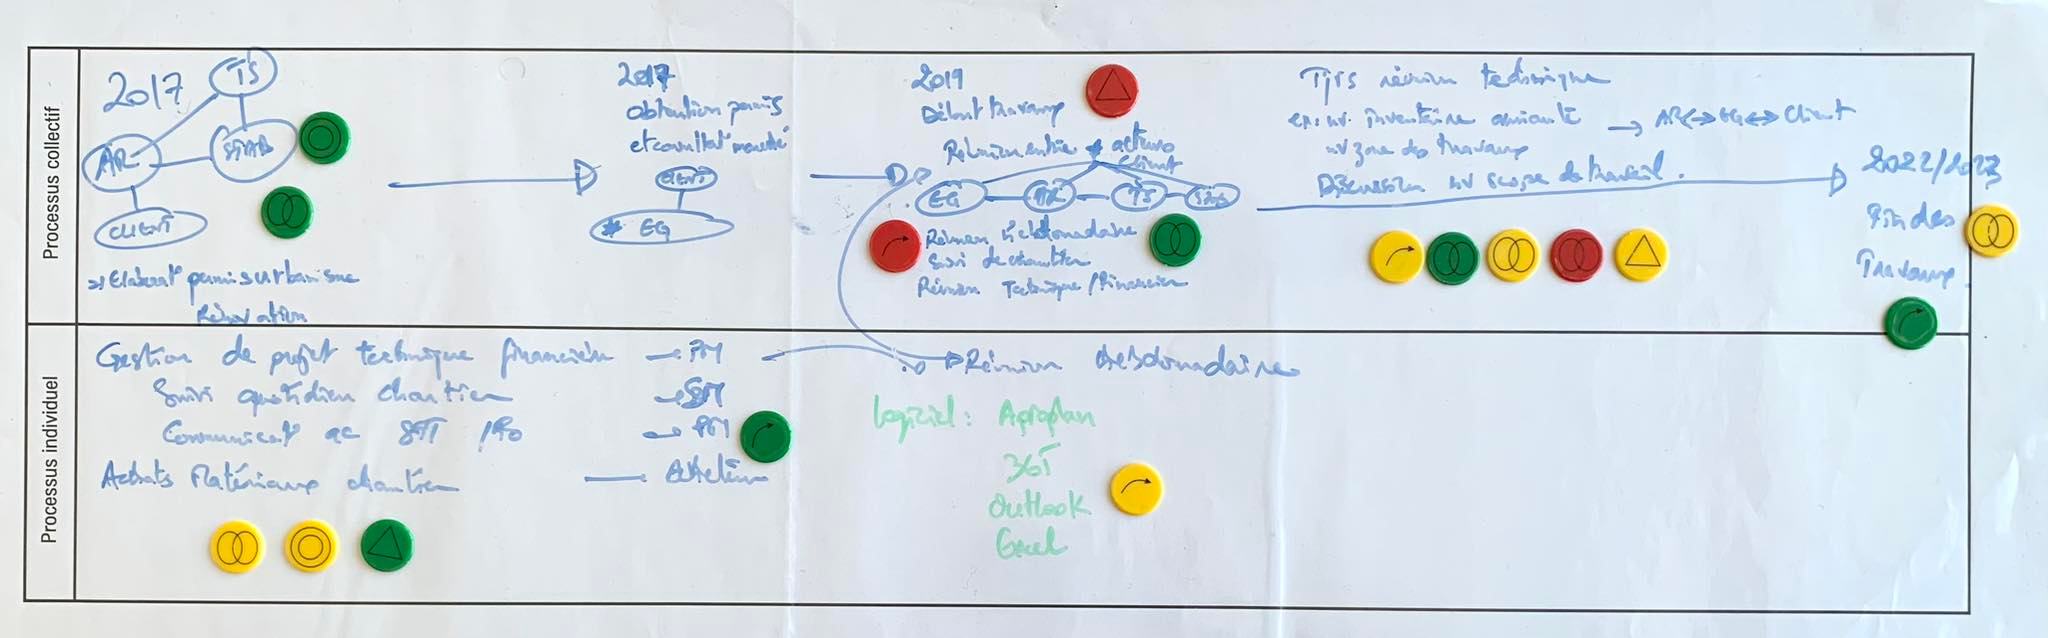 Processus collectif
2017
TS
AR
STAB
CLIENT
=> Elaborat° permis urbanisme
Rénovation
2017
obtention permis
et consultat° marché
CLIENT
* EG
2019
Début travaux
Réunion entre # acteurs
Client
EG
AR
TS
Stab
Réunion hebdomadaire
Suivi de chantier
Réunion Technique / Financier
Tjrs réunion technique
ex: nv. inventaire amiante → AR ↔ EG ↔ Client
nv zone de travaux
Discussion nv scope de travail.
2022/2023
Fin des
Travaux.
Processus individuel
Gestion de projet technique financier → PM
Suivi quotidien chantier → SM
Communicat° ac STT / → PM
Achats Matériaux chantier — Acheteur
Réunion Hebdomadaire
Logiciel : Aproplan
365
Outlook
Excel